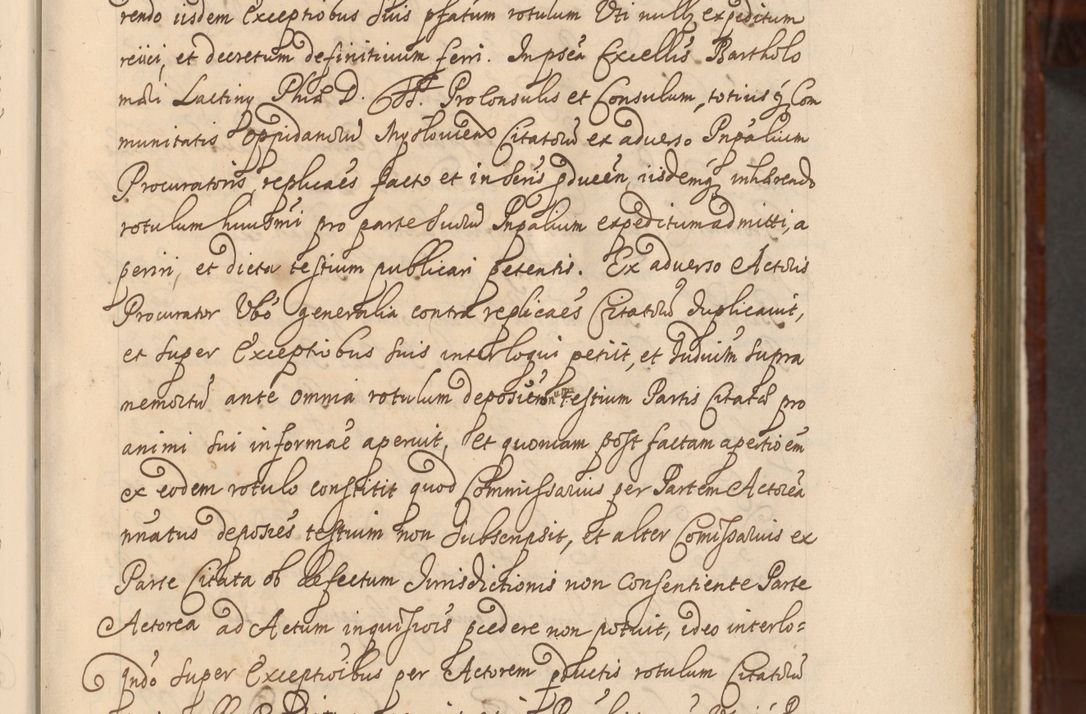 rendo iisdem Exceptiobus suis pfatum rotulum Uti null expeditum
reiici, et decretum definitiuum ferri. In psẽa Excelľis Bartholo
mæi Lactiny Phiæ D. Proconsulis et Consulum, totiusq Com
munitatis Oppidanorũ Mysloviens Citatorũ ex adverso Inpalium
Procuratoris, replicaẽs facto et in beñis pducẽn, iisdemq inhærendo
rotulum huiusmi pro parte suorũ Inpalium expeditum admitti, a
periri, et dicta testium publicari petentis. Ex adverso Actoris
Procurator Vbo generalia contra replicaẽs Citatorũ duplicavit,
et super Exceptiobus suis interloqui petiit, et Iudiuim supra
nemoratũ ante omnia rotulum deposiẽn testium Partis Citatæ pro
animi sui informaẽ aperuit, et quoniam post factam apeitioẽm
ex eodem rotulo constitit quod Commissarius per Partem Actoreã
nñatus deposiẽs testium non subscripsit, et alter Comissarius ex
Parte Citata ob defectum Jurisdictionis non consentiente Parte
Actorea ad Actum inquisiois pcedere non potuit, ideo interlo=
qndo super Exceptioibus per Actorem pductis rotulum Citatorũ